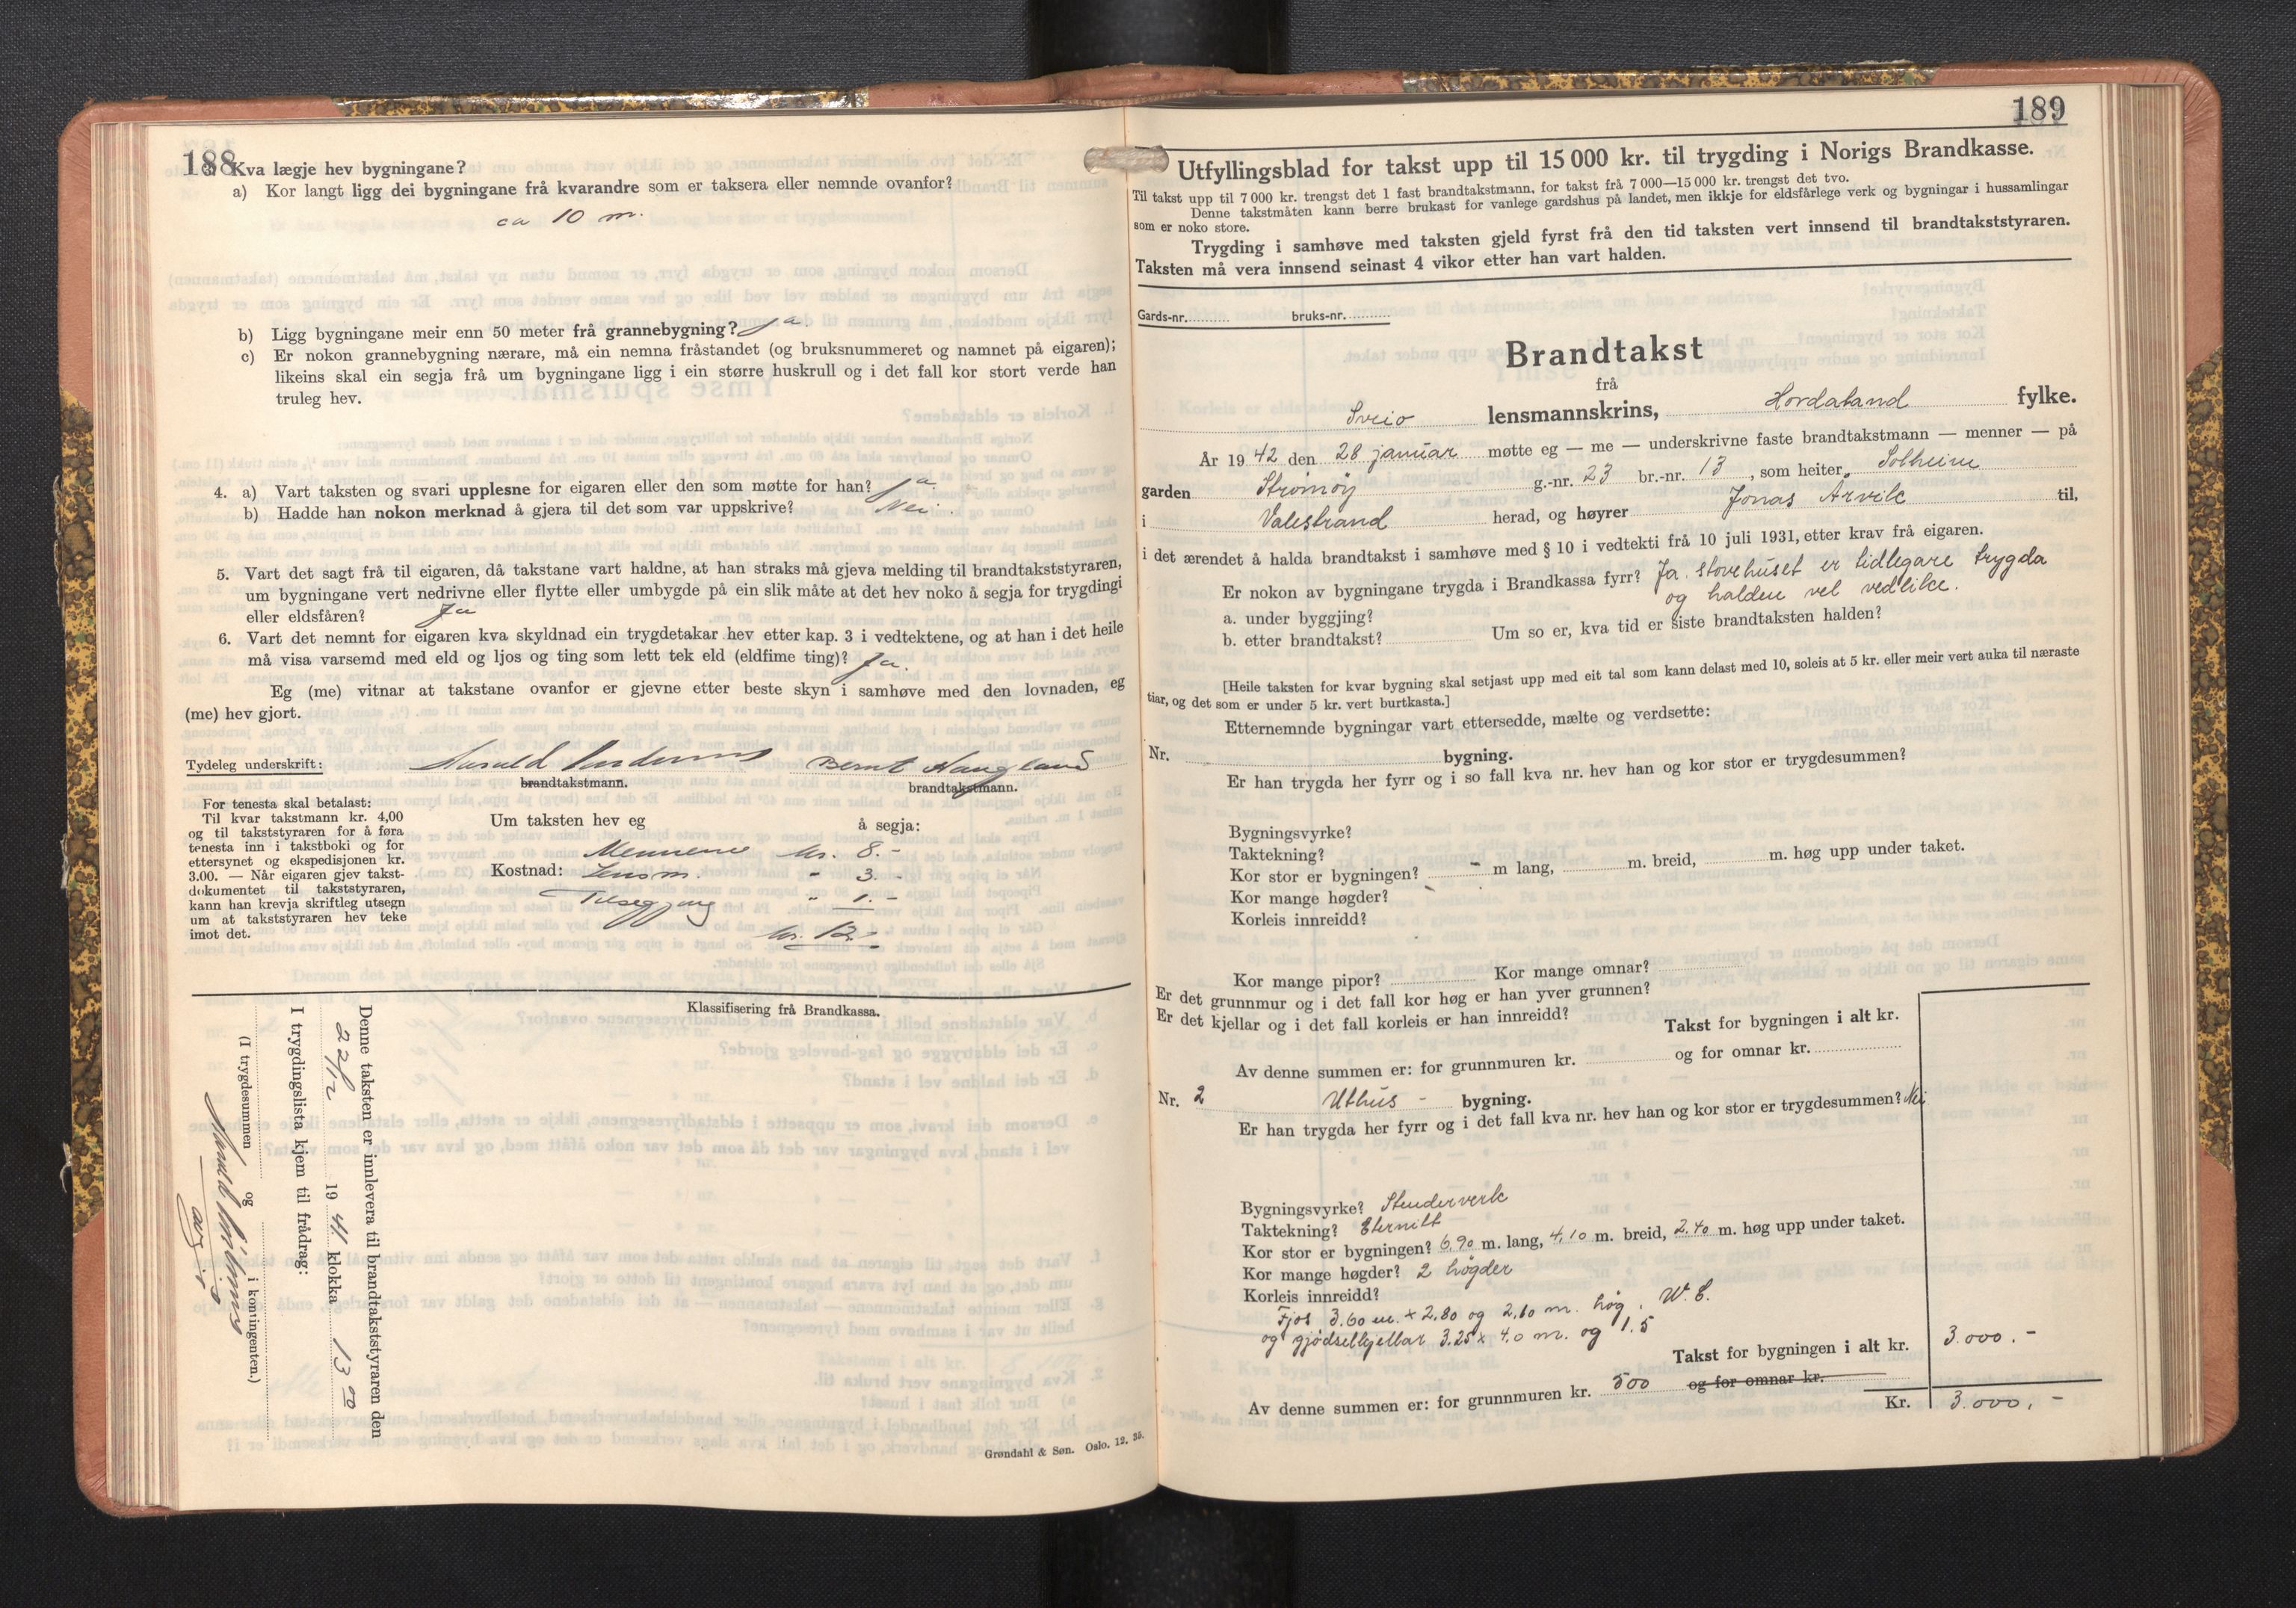 188
3. Kva lægje hev bygningane?
a) Kor langt ligg dei bygningane frå kvarandre som er taksera eller nemnde ovanfor?
ca 10 m.
b) Ligg bygningane meir enn 50 meter frå grannebygning? Ja.
c) Er nokon grannebygning nærare, må ein nemna fråstandet (og bruksnummeret og namnet på eigaren);
likeins skal ein segja frå um bygningane ligg i ein større huskrull og i det fall kor stort verde han
truleg hev.
4. a) Vart taksten og svari upplesne for eigaren eller den som møtte for han? Ja.
b) Hadde han nokon merknad å gjera til det som var uppskrive? Nei.
5. Vart det sagt frå til eigaren, då takstane vart haldne, at han straks må gjeva melding til brandtakststyraren,
um bygningane vert nedrivne eller flytte eller umbygde på ein slik måte at det hev noko å segja for trygdingi
eller eldsfåren? Ja
6. Vart det nemnt for eigaren kva skyldnad ein trygdetakar hev etter kap. 3 i vedtektene, og at han i det heile
må visa varsemd med eld og ljos og ting som lett tek eld (eldfime ting)? Ja.
Eg (me) vitnar at takstane ovanfor er gjevne etter beste skyn i samhøve med den lovnaden, eg
(me) hev gjort.
Tydeleg underskrift: Harald Bernt Haugland
brandtakstmann. brandtakstmann.
For tenesta skal betalast:
Til kvar takstmann kr. 4,00
og til takststyraren for å føra
tenesta inn i takstboki og for
ettersynet og ekspedisjonen kr.
3.00. — Når eigaren gjev takst-
dokumentet til takststyraren,
kann han krevja skriftleg utsegn
um at takststyraren hev teke
imot det.
Um taksten hev eg å segja:
Mennene kr. 8.-
Kostnad: Lensm. " 3.-
Tilseggjing " 1.-
kr. 12.-
Klassifisering frå Brandkassa.
Denne taksten er innlevera til brandtakststyraren den
22/12 1941 klokka 13 00
I trygdingslista kjem til frådrag:
(I trygdesummen og i kontingenten.)
Grøndahl & Søn. Oslo. 12. 35.
189
Utfyllingsblad for takst upp til 15 000 kr. til trygding i Norigs Brandkasse.
Til takst upp til 7 000 kr. trengst det 1 fast brandtakstmann, for takst frå 7 000—15 000 kr. trengst det tvo.
Denne takstmåten kann berre brukast for vanlege gardshus på landet, men ikkje for eldsfårlege verk og bygningar i hussamlingar
som er noko store.
Trygding i samhøve med taksten gjeld fyrst frå den tid taksten vert innsend til brandtakststyraren.
Taksten må vera innsend seinast 4 vikor etter han vart halden.
Gards-nr. bruks-nr.
Brandtakst
frå
Sveio lensmannskrins, Hordaland fylke.
År 1942 den 28 januar møtte eg — me — underskrivne faste brandtakstmann — menner — på
garden Strømøy g.-nr. 23 br.-nr. 13, som heiter Solheim
i Valestrand herad, og høyrer Jonas Arvik til,
i det ærendet å halda brandtakst i samhøve med § 10 i vedtekti frå 10 juli 1931, etter krav frå eigaren.
Er nokon av bygningane trygda i Brandkassa fyrr? Ja. Stovehuset er tidlegare trygda
og halden vel vedlike.
a. under byggjing?
b. etter brandtakst? Um so er, kva tid er siste brandtaksten halden?
[Heile taksten for kvar bygning skal setjast upp med eit tal som kann delast med 10, soleis at 5 kr. eller meir vert auka til næraste
tiar, og det som er under 5 kr. vert burtkasta.]
Etternemnde bygningar vart ettersedde, mælte og verdsette:
Nr. bygning.
Er han trygda her fyrr og i so fall kva nr. hev han og kor stor er trygdesummen?
Bygningsvyrke?
Taktekning?
Kor stor er bygningen? - m lang, m. breid, m. høg upp under taket.
Kor mange høgder?
Korleis innreidd?
Kor mange pipor? Kor mange omnar?
Er det grunnmur og i det fall kor høg er han yver grunnen?
Er det kjellar og i det fall korleis er han innreidd?
Takst for bygningen i alt kr.
Av denne summen er: for grunnmuren kr. og for omnar kr.
Nr. 2 Uthus - bygning.
Er han trygda her fyrr og i det fall kva nr. hev han og kor stor er trygdesummen? Nei
Bygningsvyrke? Stenderverk
Taktekning? Eternitt
Kor stor er bygningen? 6,90 m. lang, 4,10 m. breid, 2,40 m. høg upp under taket.
Kor mange høgder? 2 høgder
Korleis innreidd?
Fjos 3.60 m. x 2,80 og 2,10 m. høg. W.C.
og gjødselkjellar 3.25 x 4.0 m. og 1.5
Takst for bygningen i alt kr. 3.000.-
Av denne summen er: for grunnmuren kr. 500 og for omnar kr.
Kr. 3.000,-